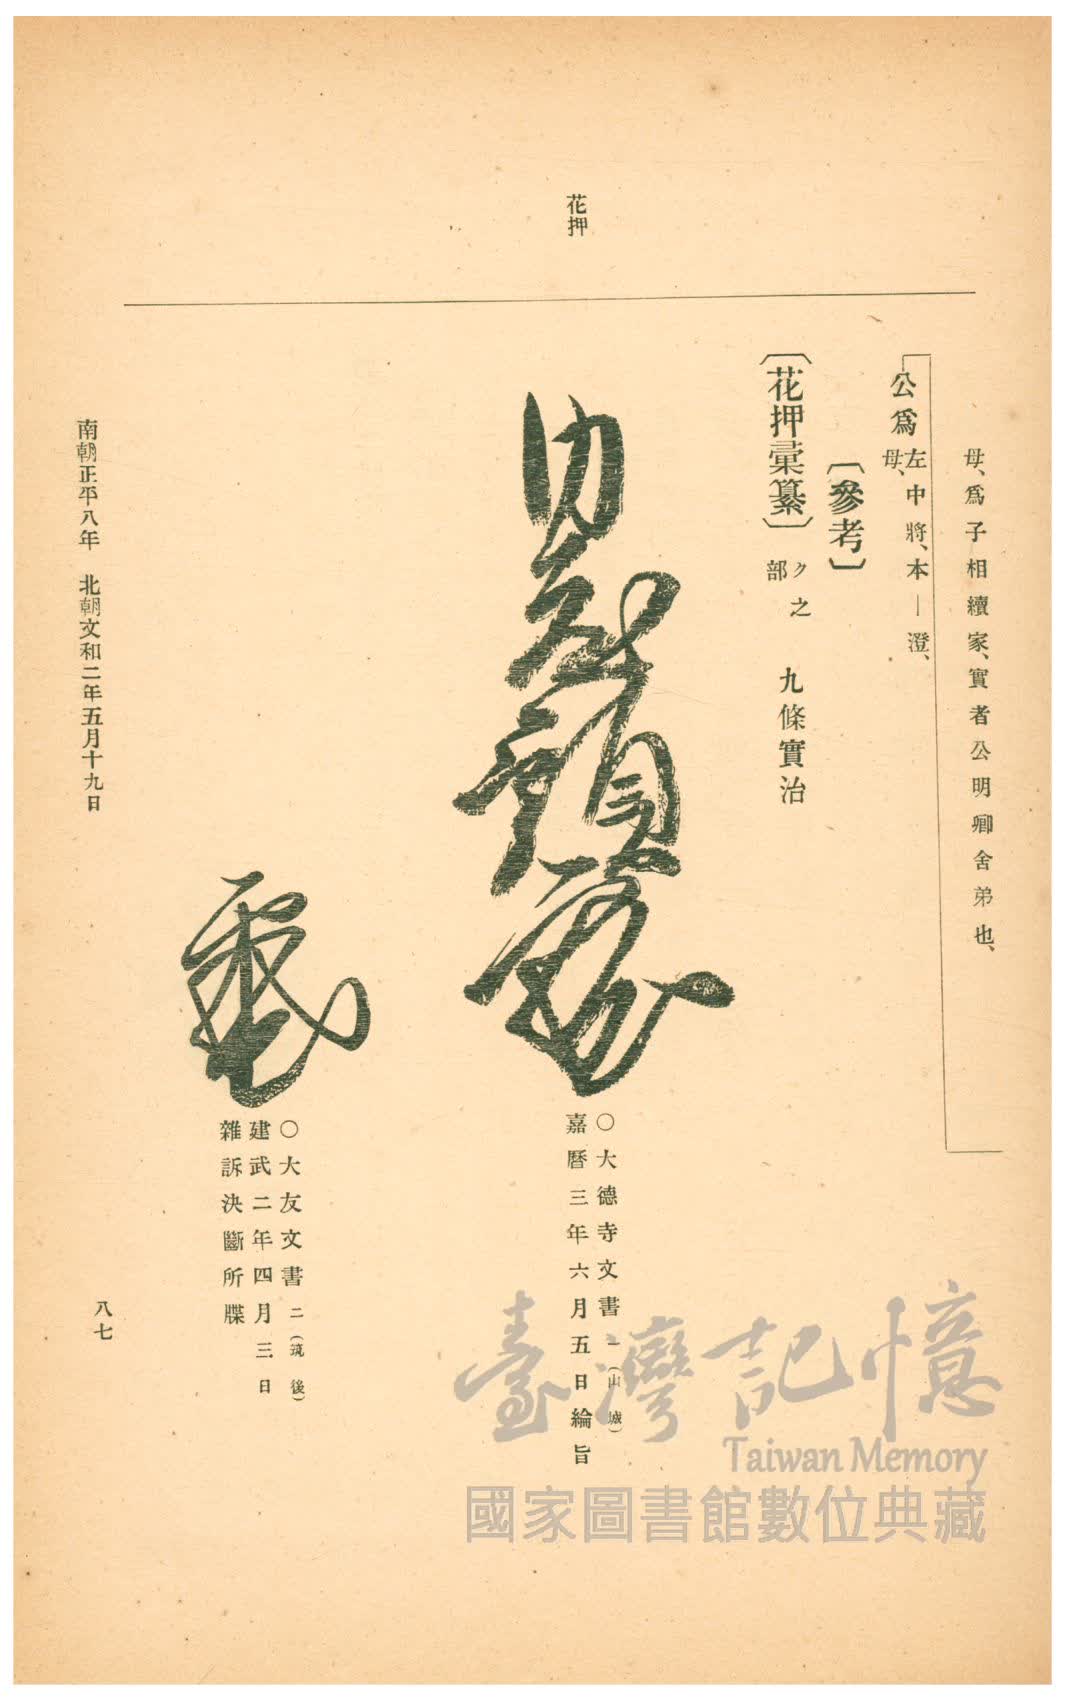 花押
母、爲子相續家、實者公明卿舍弟也、
公爲左中將、本—澄、
母、
〔參考〕
〔花押彙纂〕ク之部 九條實治
○大德寺文書一(山城)
嘉曆三年六月五日綸旨
○大友文書二(筑後)
建武二年四月三日
雜訴決斷所牒
南朝正平八年 北朝文和二年五月十九日
八七
臺灣記憶
Taiwan Memory
國家圖書館數位典藏